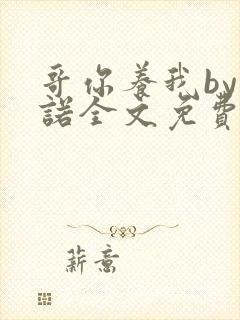 哥你养我by
諾全文免費
薪意